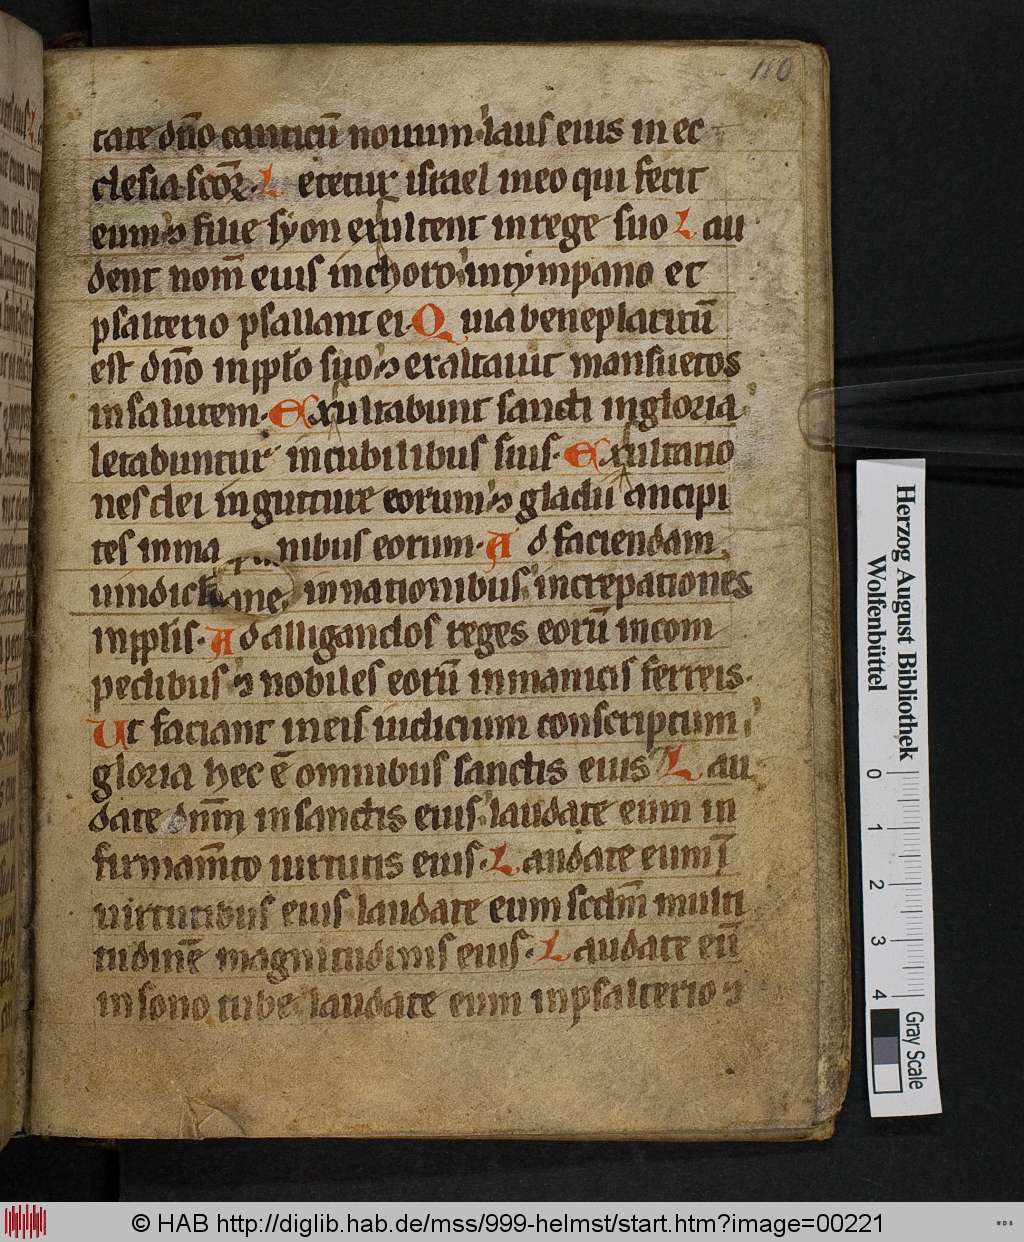 110
tate dño canticū nouum laus eius in ec
clesia scōꝝ. Letetur israel in eo qui fecit
eum ⁊ filie syon exultent in rege suo Lau
dent nom̄ eius in choro in tympano et
psalterio psallant ei. Quia beneplacitū
est dño in pplo suo ⁊ exaltauit mansuetos
in salutem. Exultabunt sancti in gloria
letabuntur in cubilibus suis. Exultatio
nes dei in gutture eorum ⁊ gladii ancipi
tes in ma nibus eorum. Ad faciendam
uindictame in nationibus increpationes
in pplis. Ad alligandos reges eorū in com
pedibus ⁊ nobiles eorū in manicis ferreis.
Ut faciant in eis iudicium conscriptum
gloria hec ē omnibus sanctis eius Lau
date dnm̄ in sanctis eius laudate eum in
firmam̄to uirtutis eius. Laudate eum ī
uirtutibus eius laudate eum scdm̄ multi
tudinē magnitudinis eius. Laudate eū
in sono tube laudate eum in psalterio ⁊
Herzog August Bibliothek
Wolfenbüttel
0
1
2
3
4
Gray Scale
© HAB http://diglib.hab.de/mss/999-helmst/start.htm?image=00221